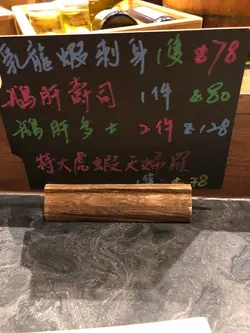 乳龍蝦刺身 1隻 $78
鵝肝壽司 1件 $80
鵝肝多士 2件 $128
特大虎蝦天婦羅
1隻 $78